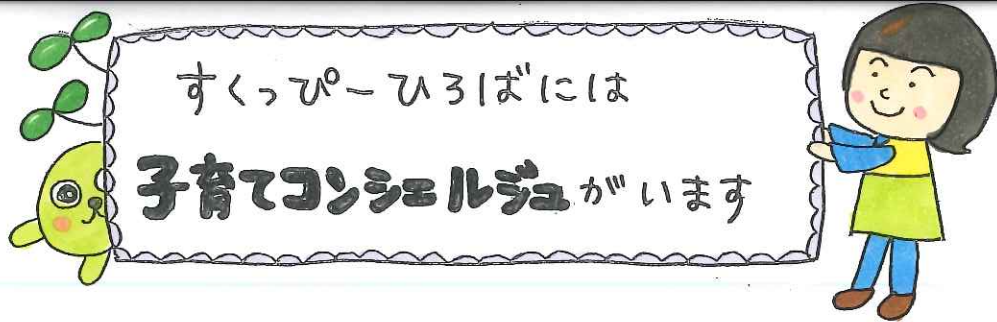 すくっぴーひろばには
子育てコンシェルジュがいます